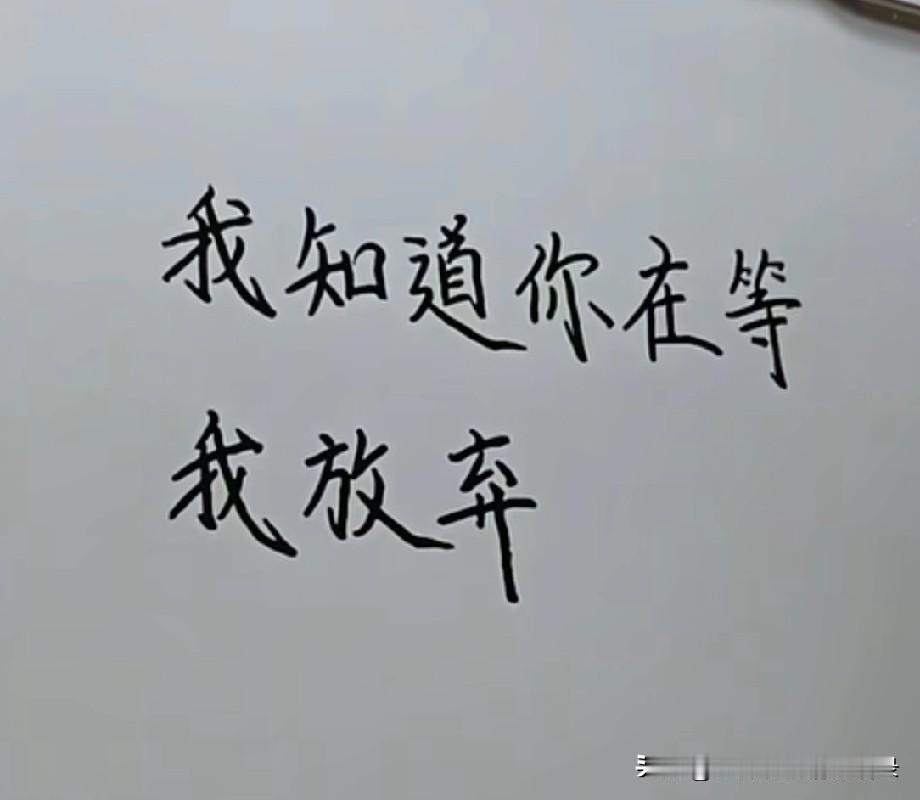 我知道你在等
我放弃